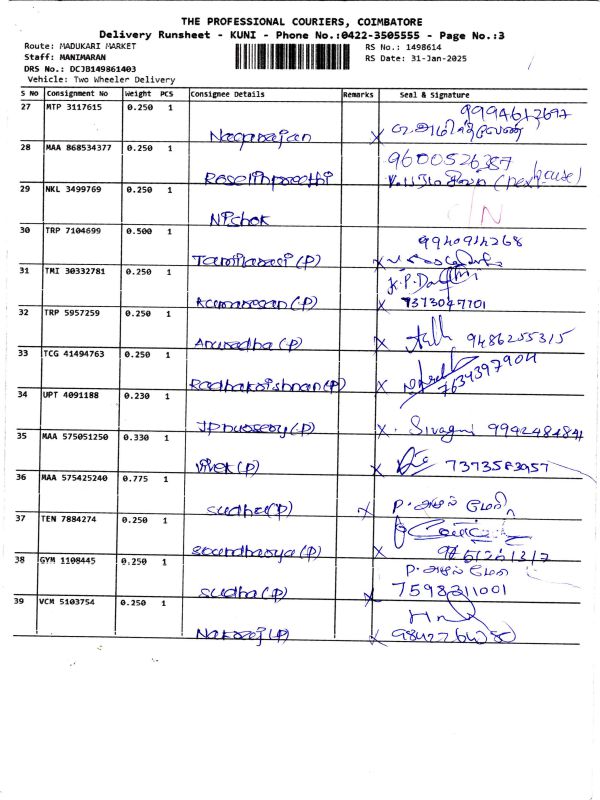 THE PROFESSIONAL COURIERS, COIMBATORE
Delivery Runsheet - KUNI - Phone No.:0422-3505555 - Page No.:3
Route: MADUKARI MARKET RS No.: 1498614
Staff: MANIMARAN RS Date: 31-Jan-2025
DRS No.: DCJB149861403
Vehicle: Two Wheeler Delivery
S No Consignment No Weight PCS Consignee Details Remarks Seal & Signature
27 MTP 3117615 0.250 1
Nagarajan X
28 MAA 868534377 0.250 1 9600526387
Roselinpreethi
29 NKL 3499769 0.250 1
Nishok
C/N
30 TRP 7104699 0.500 1 9940914268
Tamilarasi (P) X
31 TMI 30332781 0.250 1
Kumaresan (P) X 7373047701
32 TRP 5957259 0.250 1
Anuradha (P) X 9486255315
33 TCG 41494763 0.250 1
Radhakrishnan (P) X 7634397904
34 UPT 4091188 0.230 1
JP nursery (P) X. Sivagni 9942484841
35 MAA 575051250 0.330 1
Vivek (P) X 7373583957
36 MAA 575425240 0.775 1
Sudha (P) X P. அமுல் மேரி
37 TEN 7884274 0.250 1
Soundharya (P) X
38 GYM 1108445 0.250 1 P. அமுல் மேரி
Sudha (P) X 7598311001
39 VCM 5103754 0.250 1
Nataraj (P) X